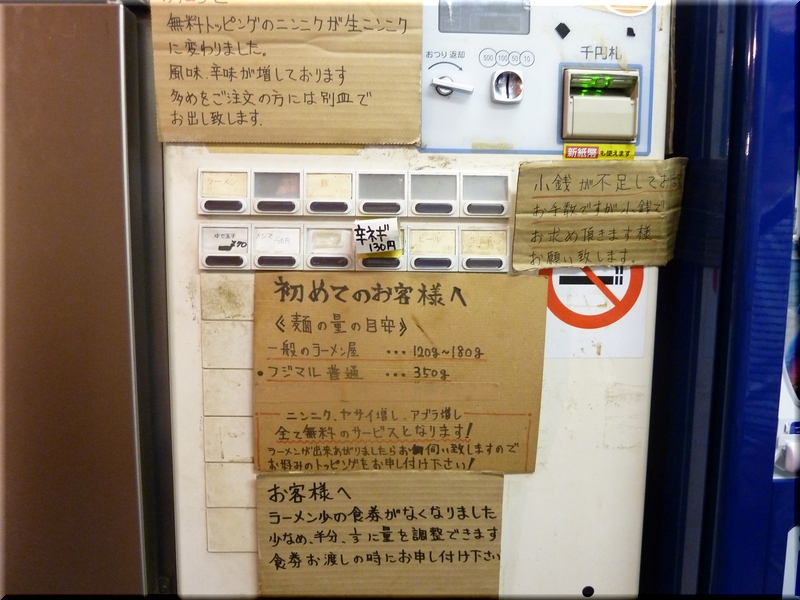 無料トッピングのニンニクが生ニンニク
に変わりました。
風味、辛味が増しております
多めをご注文の方には別皿で
お出し致します。
おつり返却
500 100 50 10
千円札
新紙幣も使えます
小銭が不足してお
お手数ですが小銭で
お求め頂きます様
お願い致します。
ラーメン
ゆで玉子
辛ネギ
130円
ビール
初めてのお客様へ
《麺の量の目安》
一般のラーメン屋 …120g~180g
・フジマル普通 …350g
ニンニク、ヤサイ増し、アブラ増し
全て無料のサービスとなります!
ラーメンが出来あがりましたらお伺い致しますので
お好みのトッピングをお申し付け下さい!
お客様へ
ラーメン少の食券がなくなりました
少なめ、半分、1/3に量を調整できます
食券お渡しの時にお申し付け下さい